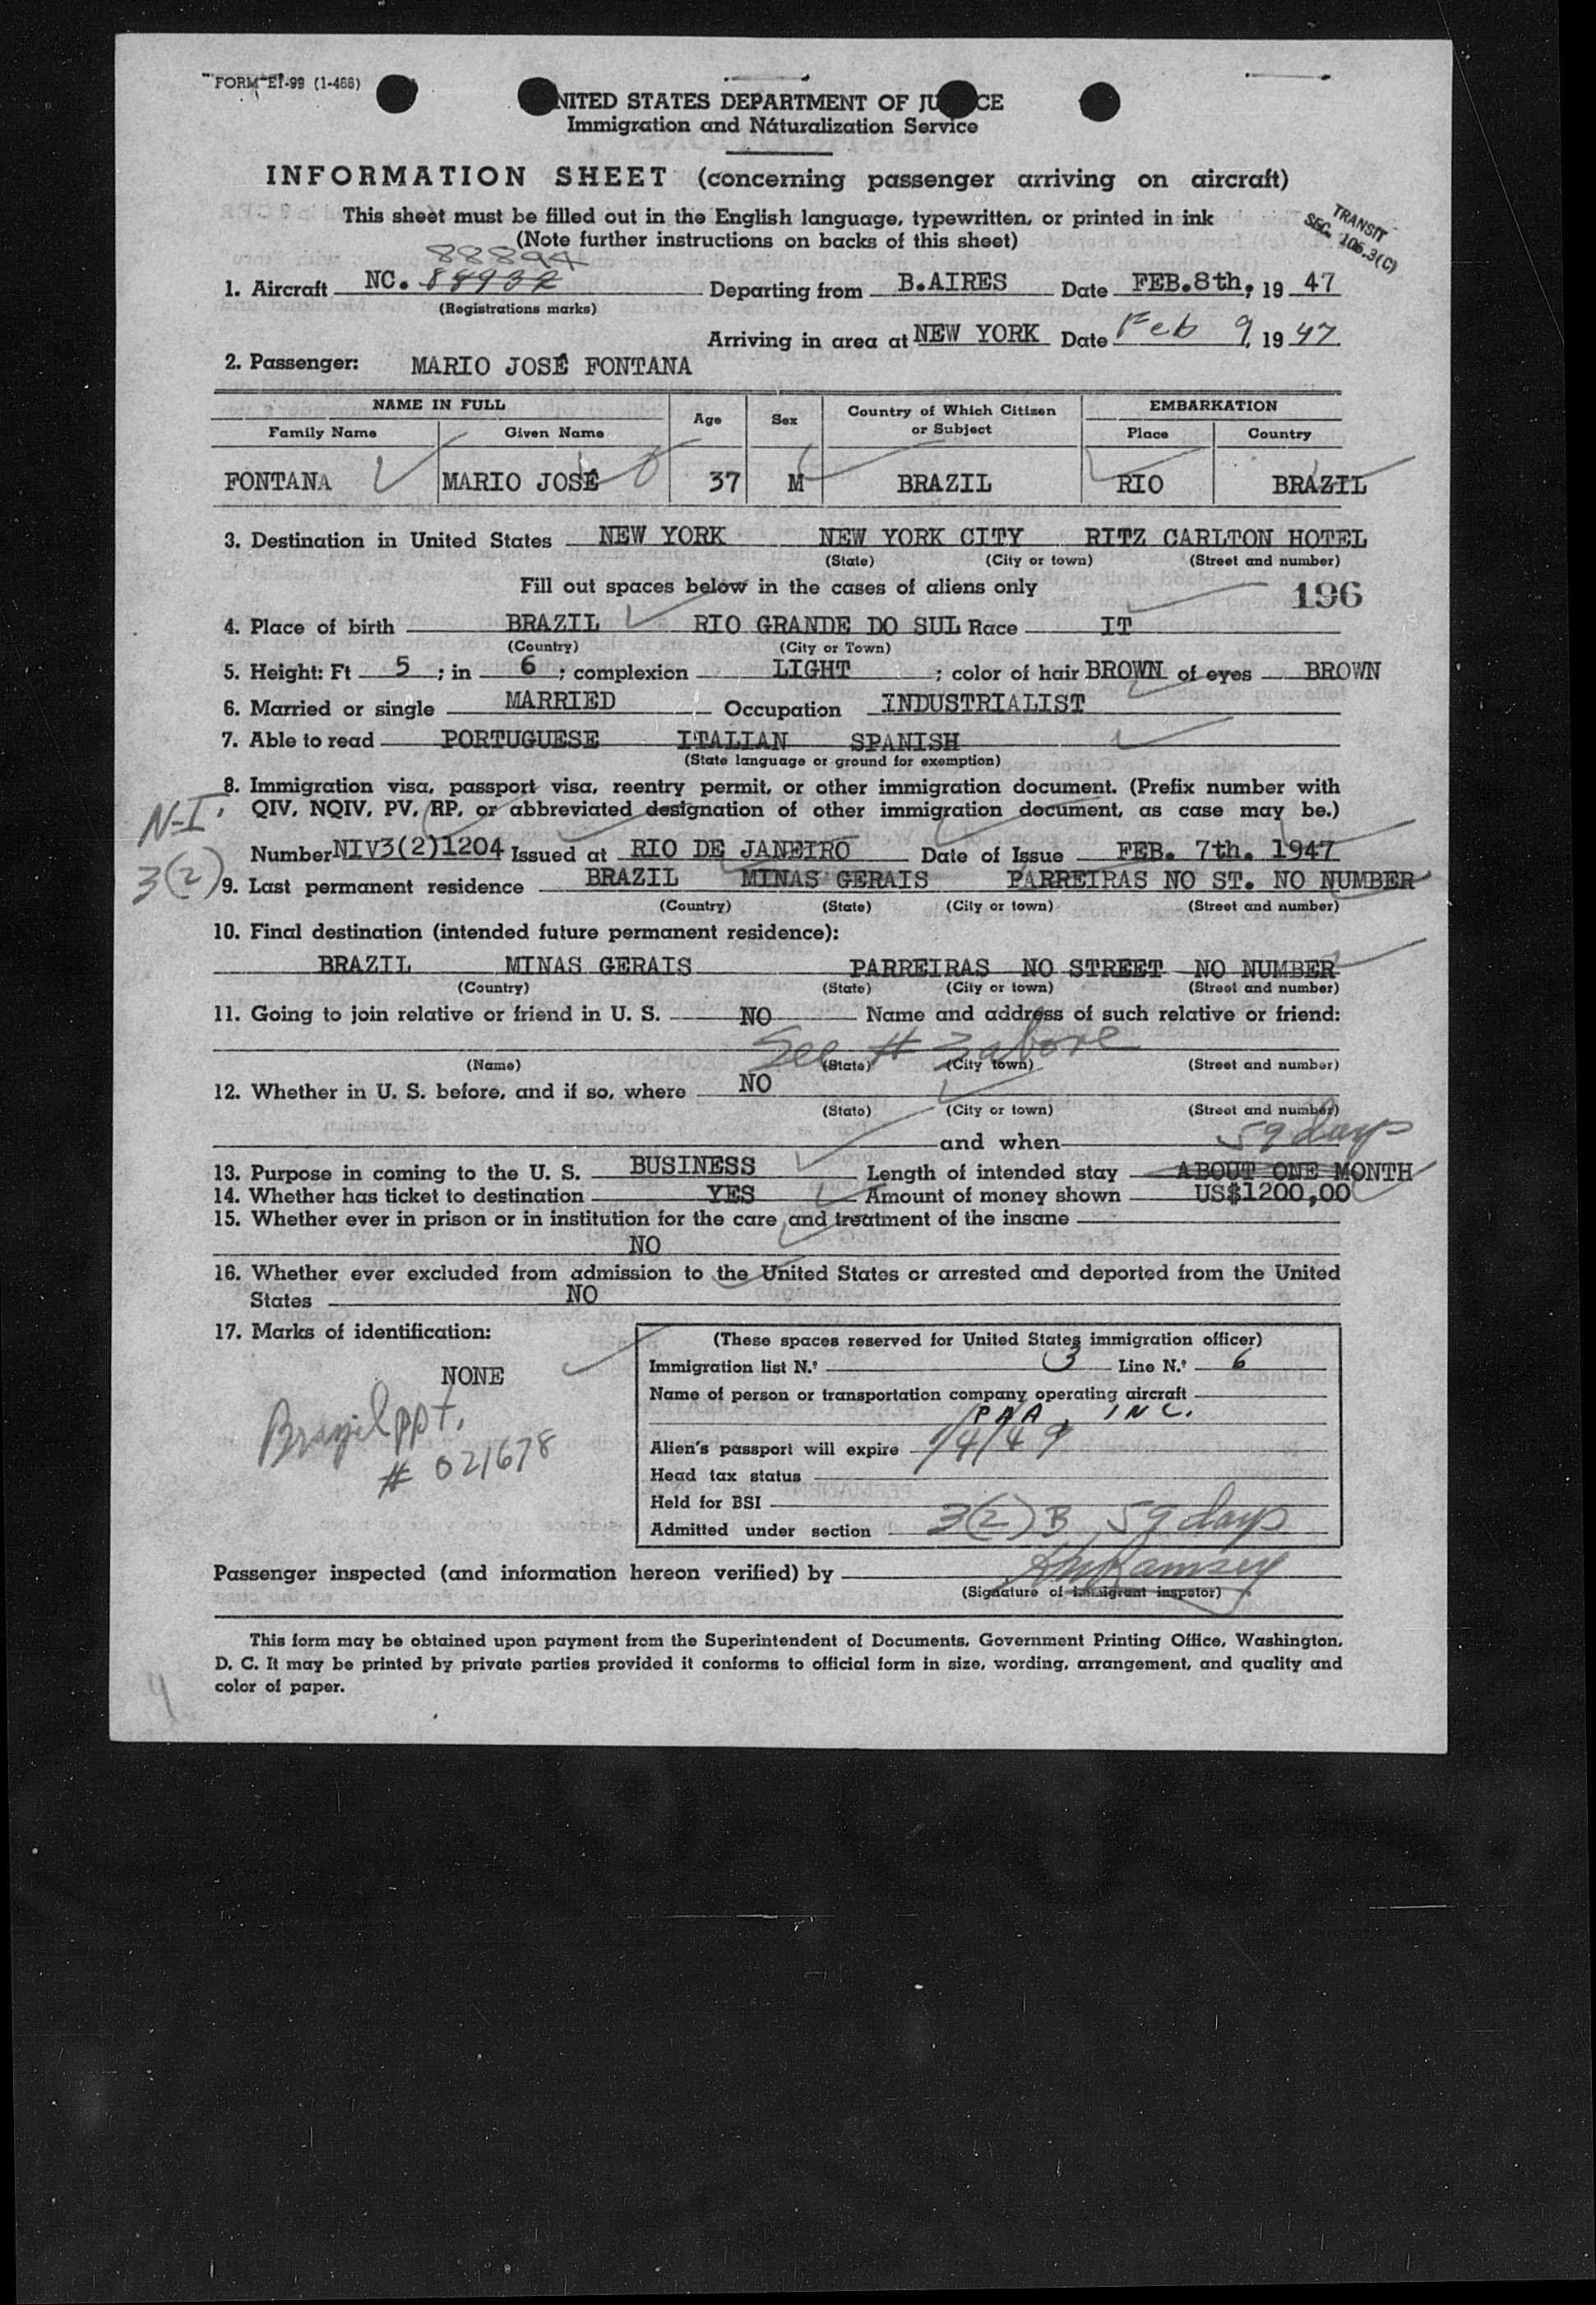 FORM EI-99 (1-466)
NITED STATES DEPARTMENT OF JU CE
Immigration and Naturalization Service
INFORMATION SHEET (concerning passenger arriving on aircraft)
This sheet must be filled out in the English language, typewritten, or printed in ink
(Note further instructions on backs of this sheet)
TRANSIT
SEC. 105.3(C)
88894
1. Aircraft NC. Departing from B.AIRES Date FEB.8th, 19 47
(Registrations marks)
Arriving in area at NEW YORK Date Feb 9, 19 47
2. Passenger: MARIO JOSÉ FONTANA
NAME IN FULL Age Sex Country of Which Citizen or Subject EMBARKATION
Family Name Given Name Place Country
FONTANA MARIO JOSÉ 37 M BRAZIL RIO BRAZIL
3. Destination in United States NEW YORK NEW YORK CITY RITZ CARLTON HOTEL
(State) (City or town) (Street and number)
Fill out spaces below in the cases of aliens only
196
4. Place of birth BRAZIL RIO GRANDE DO SUL Race IT
(Country) (City or Town)
5. Height: Ft 5 ; in 6 ; complexion LIGHT ; color of hair BROWN of eyes BROWN
6. Married or single MARRIED Occupation INDUSTRIALIST
7. Able to read PORTUGUESE ITALIAN SPANISH
(State language or ground for exemption)
8. Immigration visa, passport visa, reentry permit, or other immigration document. (Prefix number with
N-I. QIV, NQIV, PV, RP, or abbreviated designation of other immigration document, as case may be.)
Number NIV3(2)1204 Issued at RIO DE JANEIRO Date of Issue FEB. 7th. 1947
3(2) 9. Last permanent residence BRAZIL MINAS GERAIS PARREIRAS NO ST. NO NUMBER
(Country) (State) (City or town) (Street and number)
10. Final destination (intended future permanent residence):
BRAZIL MINAS GERAIS PARREIRAS NO STREET NO NUMBER
(Country) (State) (City or town) (Street and number)
11. Going to join relative or friend in U. S. NO Name and address of such relative or friend:
See # 3 above
(Name) (State) (City town) (Street and number)
12. Whether in U. S. before, and if so, where NO
(State) (City or town) (Street and number)
and when
59 days
13. Purpose in coming to the U. S. BUSINESS Length of intended stay ABOUT ONE MONTH
14. Whether has ticket to destination YES Amount of money shown US$1200,00
15. Whether ever in prison or in institution for the care and treatment of the insane
NO
16. Whether ever excluded from admission to the United States or arrested and deported from the United
States NO
17. Marks of identification:
NONE
Brazil ppt.
# 021678
(These spaces reserved for United States immigration officer)
Immigration list N.º 3 Line N.º 6
Name of person or transportation company operating aircraft
PAA, INC.
Alien's passport will expire 1/4/49
Head tax status
Held for BSI
Admitted under section 3(2) B 59 days
Passenger inspected (and information hereon verified) by Ramsey
(Signature of immigrant inspetor)
This form may be obtained upon payment from the Superintendent of Documents, Government Printing Office, Washington,
D. C. It may be printed by private parties provided it conforms to official form in size, wording, arrangement, and quality and
color of paper.